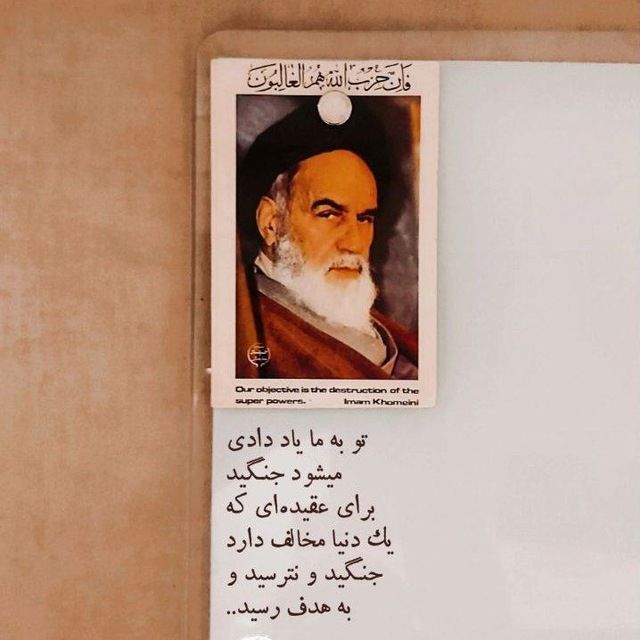 فَإِنَّ حِزْبَ اللَّهِ هُمُ الْغَالِبُونَ
Our objective is the destruction of the
super powers. Imam Khomeini
تو به ما یاد دادی
میشود جنگید
برای عقیده‌ای که
یک دنیا مخالف دارد
جنگید و نترسید و
به هدف رسید..